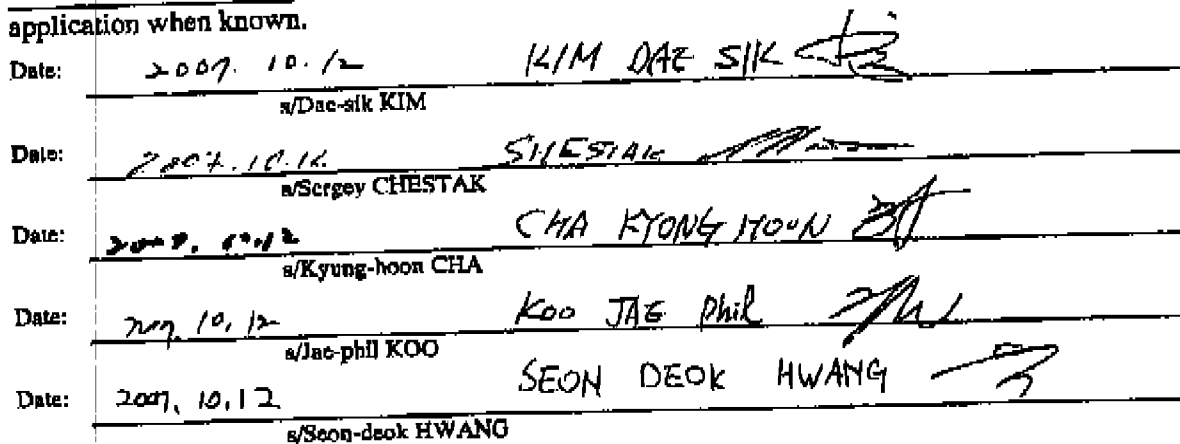 application when known.
Date: 2007. 10. 12 KIM DAE SIK
s/Dae-sik KIM
Date: 2007.10.12 SHESTAK
s/Sergey CHESTAK
Date: 2007. 10.12 CHA KYONG HOON
s/Kyung-hoon CHA
Date: 2007. 10, 12 KOO JAE Phil
s/Jae-phil KOO
Date: 2007, 10, 12 SEON DEOK HWANG
s/Seon-deok HWANG